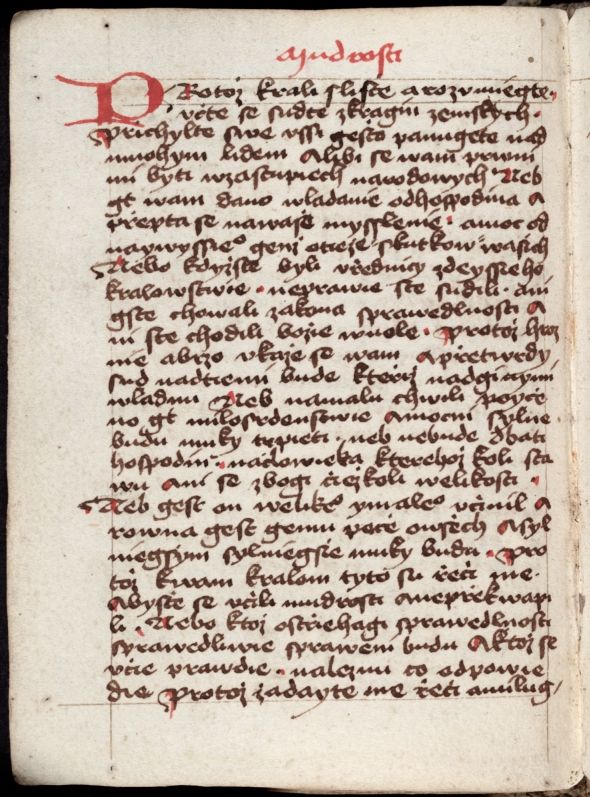 Mudrosti
PRotoż krali slisste a rozumiegte
vcte se sudce zkragin zemskych
Prichylte swe vssi gesto panugete nad
mnohym lidem A libi se wam prwni
mi byti wzastupiech narodowych Neb
gt wam dano wladanie odhospodina A
přepta se nawaše mysslenie amoc od
naywyssieo genż otieże skutkow wasich
Nebo kdyżste byli vřednicy zdeyssieho
kralowstwie neprawie ste sudili ani
gste chowali zakona sprawedlnosti A
ni ste chodili bożie wuole Protoż hroz
nie abrzo vkaże se wam A přetwrdy
sud nadtiemi bude kteriż nadginymi
wladnu Neb namalu chwili poyće
no gt milosrdenstwie Amocni sylne
budu muky trpieti neb nebude dbati
hospodin nacłowieka kterehoż koli sta
wu Ani se zbogi čieżkoli welikosti
Neb gest on welikeo ymaleo včinil A
rowna gest gemu pece owsech A syl
niegsym sylniegsie muky budu Pro
toż kwam kralom tyto su řeči me
Abyste se včili mudrosti anepřekwapi
li Nebo ktoż ostřiehagi sprawedlnosti
sprawedliwie sprawem budu A ktoż se
včie prawdie naleznu co odpowie
die Protoż żadayte me řeči amilug